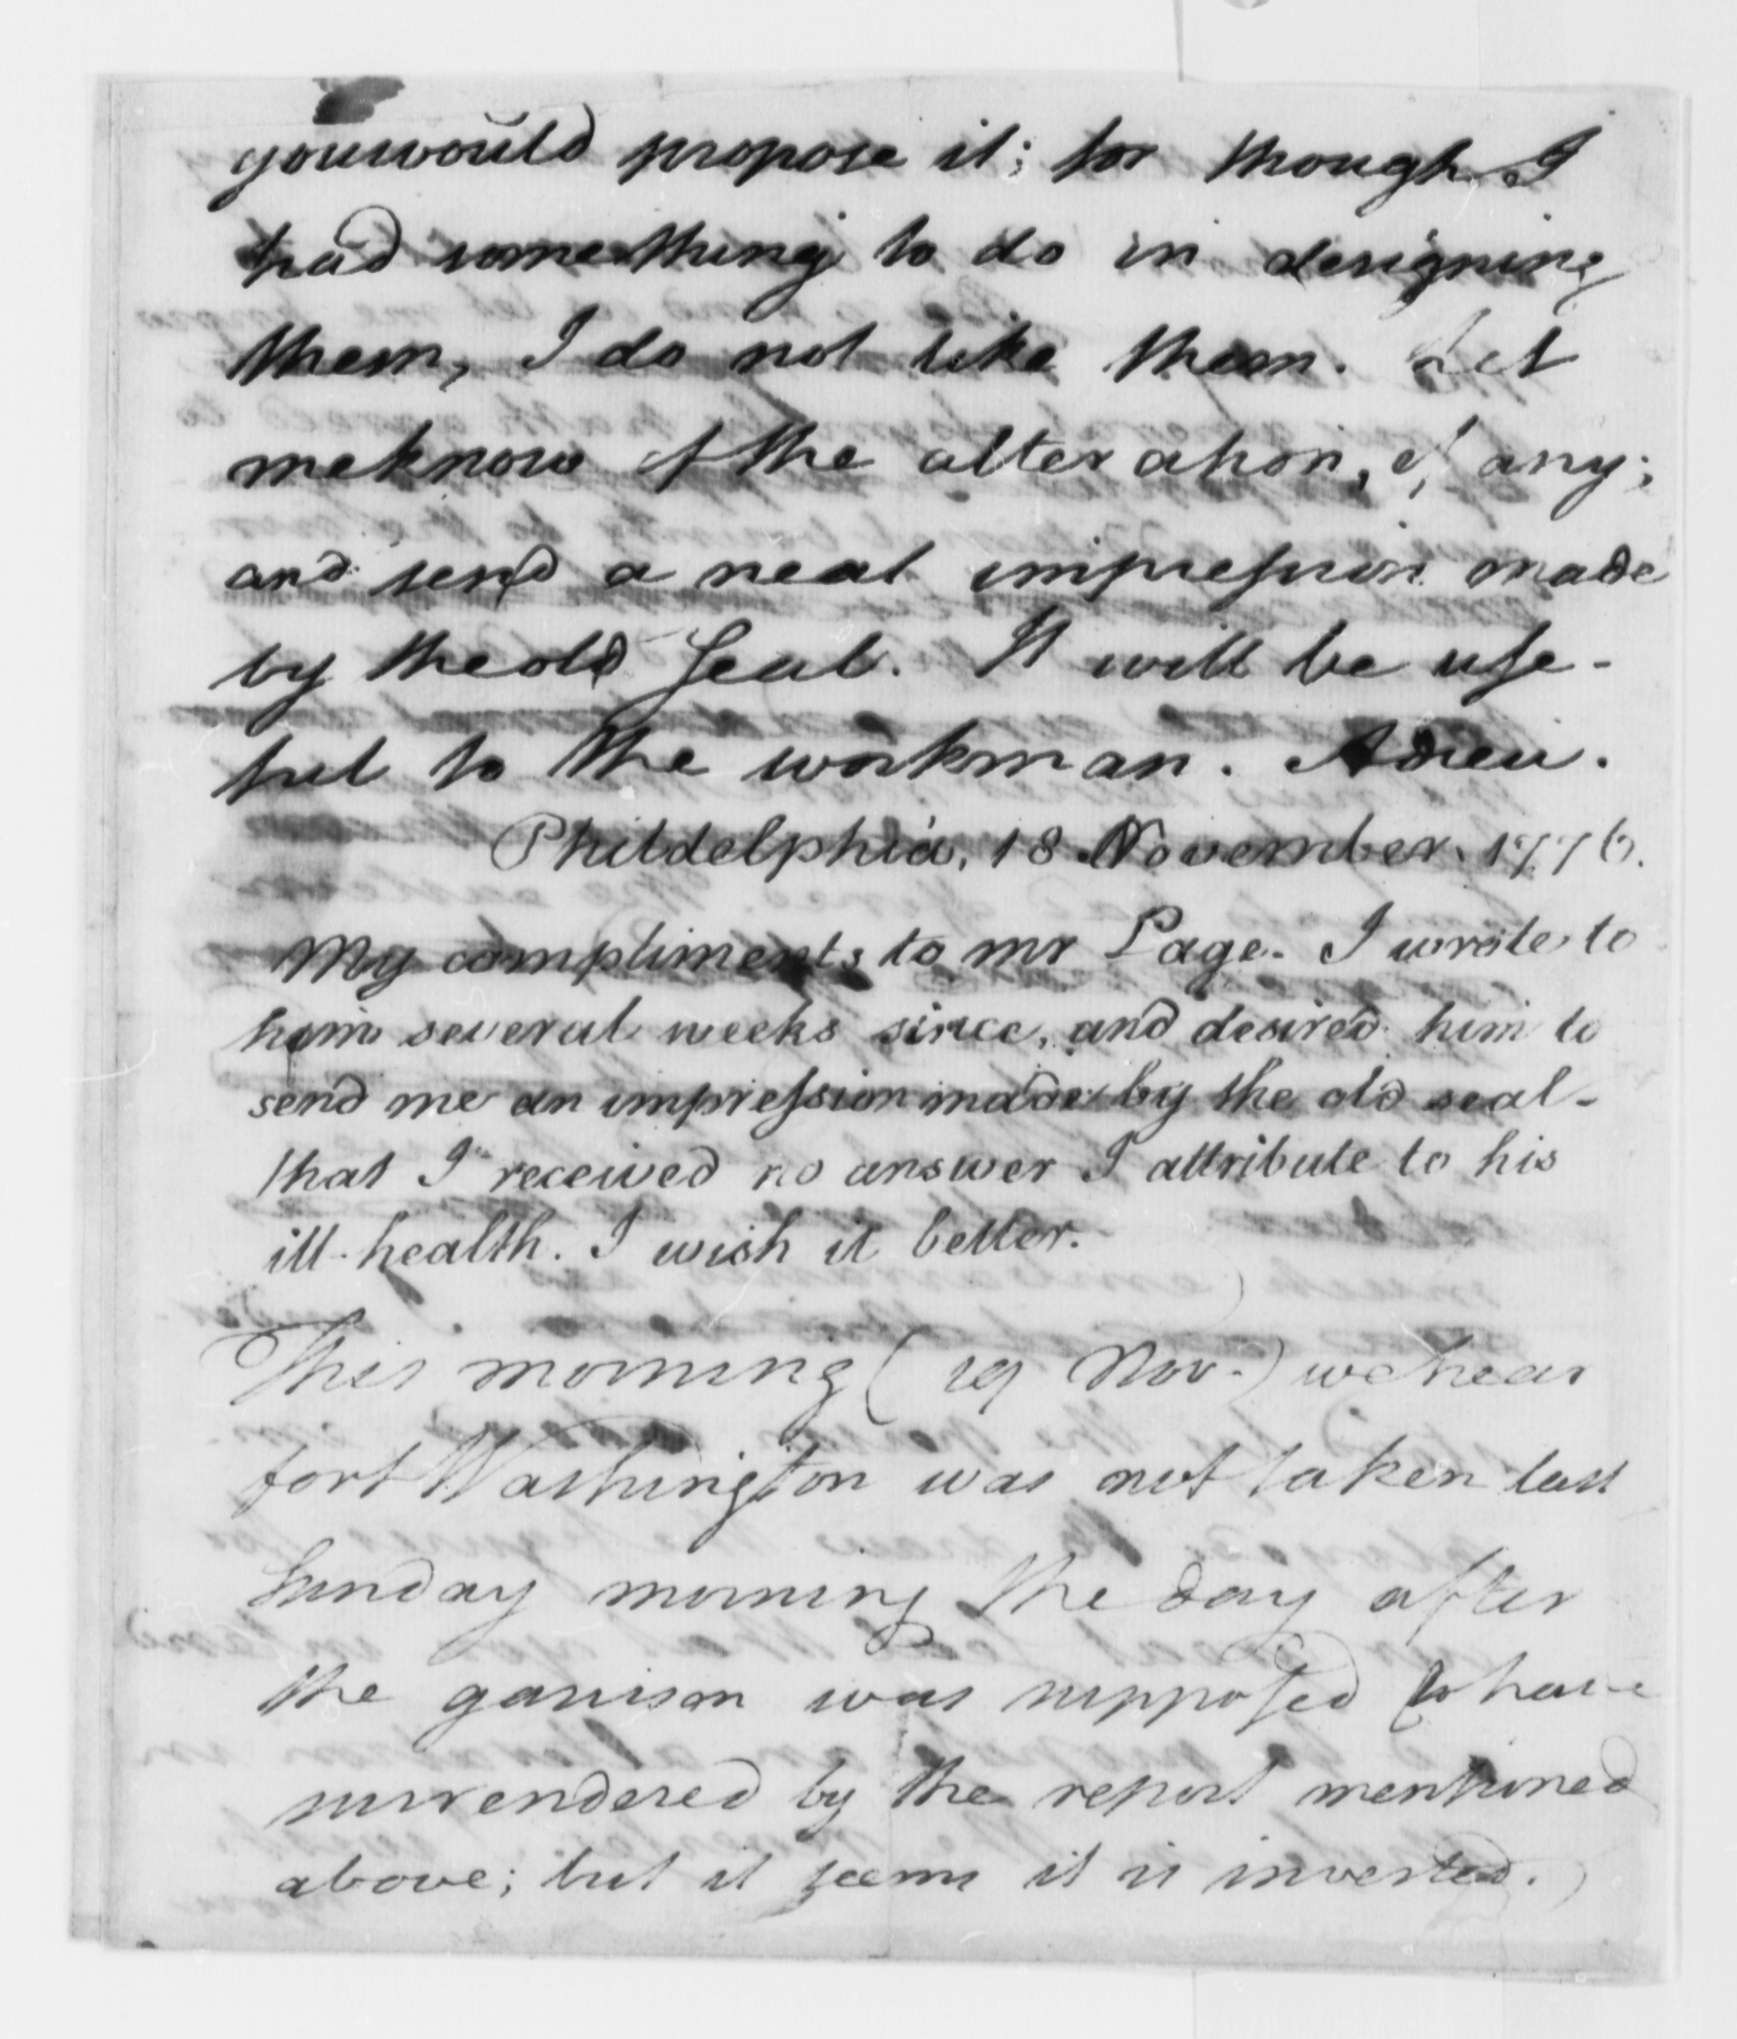 you would propose it; for though I
had something to do in designing
them, I do not like them. Let
me know of the alteration, if any;
and send a neat impression made
by the old Seal. It will be use-
ful to the workman. Adieu.
Phildelphia, 18 November. 1776.
My compliments to mr Page. I wrote to
him several weeks since, and desired him to
send me an impression made by the old seal-
that I received no answer I attribute to his
ill-health. I wish it better.
This morning (19 Nov.) we hear
fort Washington was not taken last
Sunday morning the day after
the garrison was supposed to have
surrendered by the report mentioned
above; but it seems it is invested.